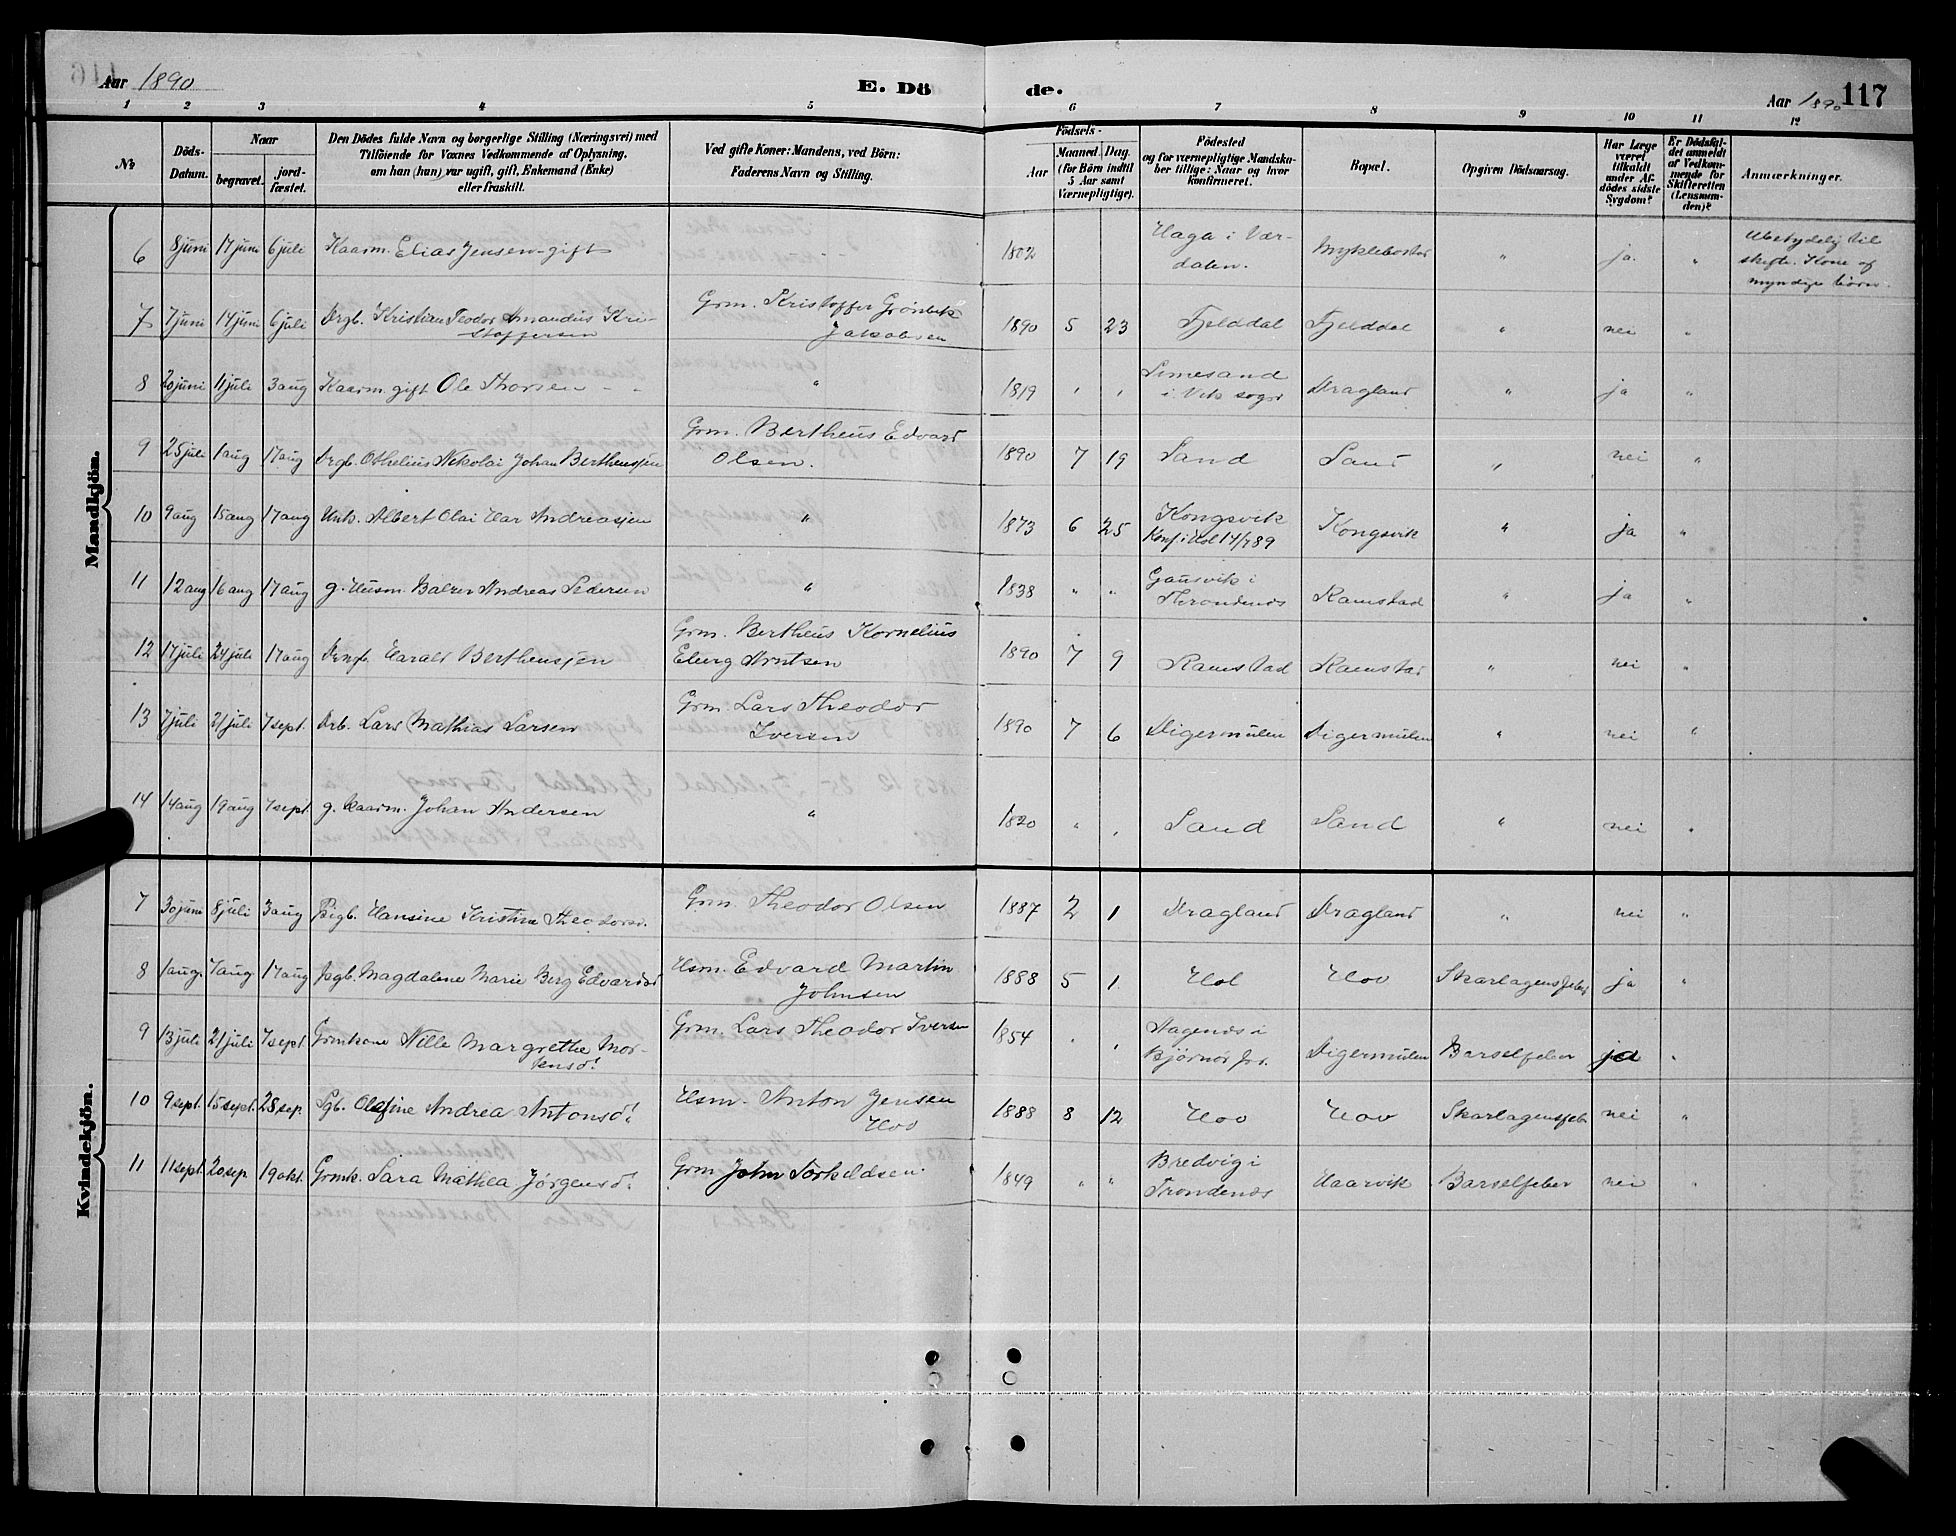 Aar 1890 E. Dö de. Aar 1890 117
1 2 3 4 5 6 7 8 9 10 11 12
No
Döds-Datum.
Naar
begravet.
jordfæstet.
Den Dödes fulde Navn og borgerlige Stilling (Næringsvei) med
Tilföiende for Voxnes Vedkommende af Oplysning.
om han (hun) var ugift, gift, Enkemand (Enke)
eller fraskilt.
Ved gifte Koner: Mandens, ved Börn:
Faderens Navn og Stilling.
Födsels-
Aar
Maaned. Dag.
(for Börn indtil
5 Aar samt
Værnepligtige).
Födested
og for værnepligtige Mandska-
ber tillige: Naar og hvor
konfirmeret.
Bopæl.
Opgiven Dödsaarsag.
Har Læge
været
tilkaldt
under Af-
dödes sidste
Sygdom?
Er Dödsfal-
det anmeldt
af Vedkom-
mende for
Skifteretten
(Lensman-
den)?
Anmærkninger.
Mandkjön.
6 8 juni 17 juni 6 juli Kaarm. Elias Jensen - gift " 1802 Haga i Vær-
dalen. Myklebostad " ja. " Ubetydelig til
skifte. Kone og
myndige börn.
7 7 juni 14 juni 6 juli Drgb. Kristian Teodor Amandus Kri-
stoffersen Grm. Kristoffer Grönbek
Jakobsen 1890 5 23 Fjelddal Fjelddal " nei "
8 20 juni 11 juli 3 aug Kaarm. gift Ole Thorsen - - " 1819 " " Limesand
i Vik sogn Dragland " ja "
9 25 juli 1 aug 17 aug Drgb. Othelius Nikolai Johan Bertheussen Grm. Bertheus Edvard
Olsen. 1890 7 19 Sand Sand " nei "
10 9 aug 15 aug 17 aug Unk. Albert Olai Har Andreasjen " 1873 6 25 Kongsvik
Konf. i Hol 14/7 89 Kongsvik " ja "
11 12 aug 16 aug 17 aug g. Husm. Balzer Andreas Pedersen " 1838 " " Gausvik i
Throndenes Ramstad " ja "
12 17 juli 24 juli 17 aug Drgb. Harald Bertheussen Grm. Bertheus Kornelius
Eberg Arntsen 1890 7 9 Ramstad Ramstad " nei "
13 7 juli 21 juli 7 sept. Drb. Lars Mathias Larsen Grm. Lars Theodor
Iversen 1890 7 6 Digermulen Digermulen " nei "
14 14 aug 19 aug 7 sept g. Kaarm. Johan Andersen " 1820 " " Sand Sand " nei "
Kvindekjön.
7 30 juni 8 juli 3 aug Pigb. Hansine Kristine Theodorsd. Grm. Theodor Olsen 1887 2 1 Dragland Dragland " nei "
8 1 aug. 7 aug. 17 aug Pgb. Magdalene Marie Berg Edvardsd Hsm. Edvard Martin
Johnsen 1888 5 1 Hol Hov Skarlagensfeber ja "
9 13 juli 21 juli 7 sept. Grmkone Nille Margrethe Mor-
tensd! Grm. Lars Theodor Iversen 1854 " " Hagenes i
Bjørnør Digermulen Barselfeber ja "
10 9 sept. 15 sept. 28 sep. Pgb. Olefine Andrea Antonsd! Hsm. Anton Jensen
Hov 1888 8 12 Hov Hov Skarlagensfeb nei "
11 11 sept. 20 sep. 19 okt. Grmk. Sara Mathea Jørgensd! Grm John Torkildsen. 1849 " " Bredvig i
Trondenes Haarvik Barselfeber nei "